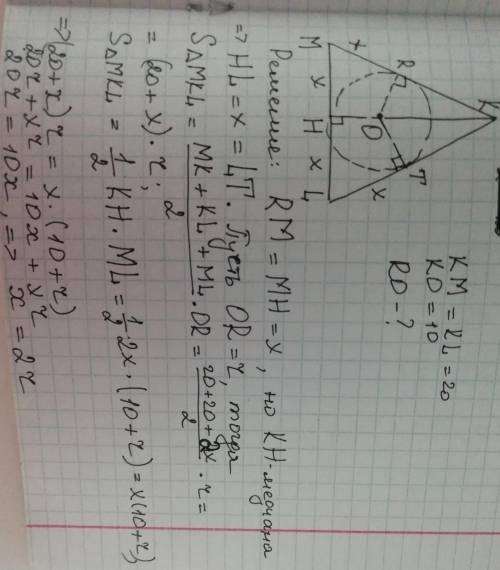 K
R
T
O
x
x
M x H x L
KM = KL = 20
KO = 10
RO - ?
Решение: RM = MH = x, но KH-медиана
=> HL = x = LT. Пусть OR = r, тогда
S△MKL = (MK + KL + ML)/2 · OR = (20+20+2x)/2 · r =
= (20 + x) · r;
S△MKL = 1/2 KH · ML = 1/2 · 2x · (10 + r) = x(10+r),
=> (20+x) r = x · (10+r)
20r + xr = 10x + xr
20r = 10x, => x = 2r